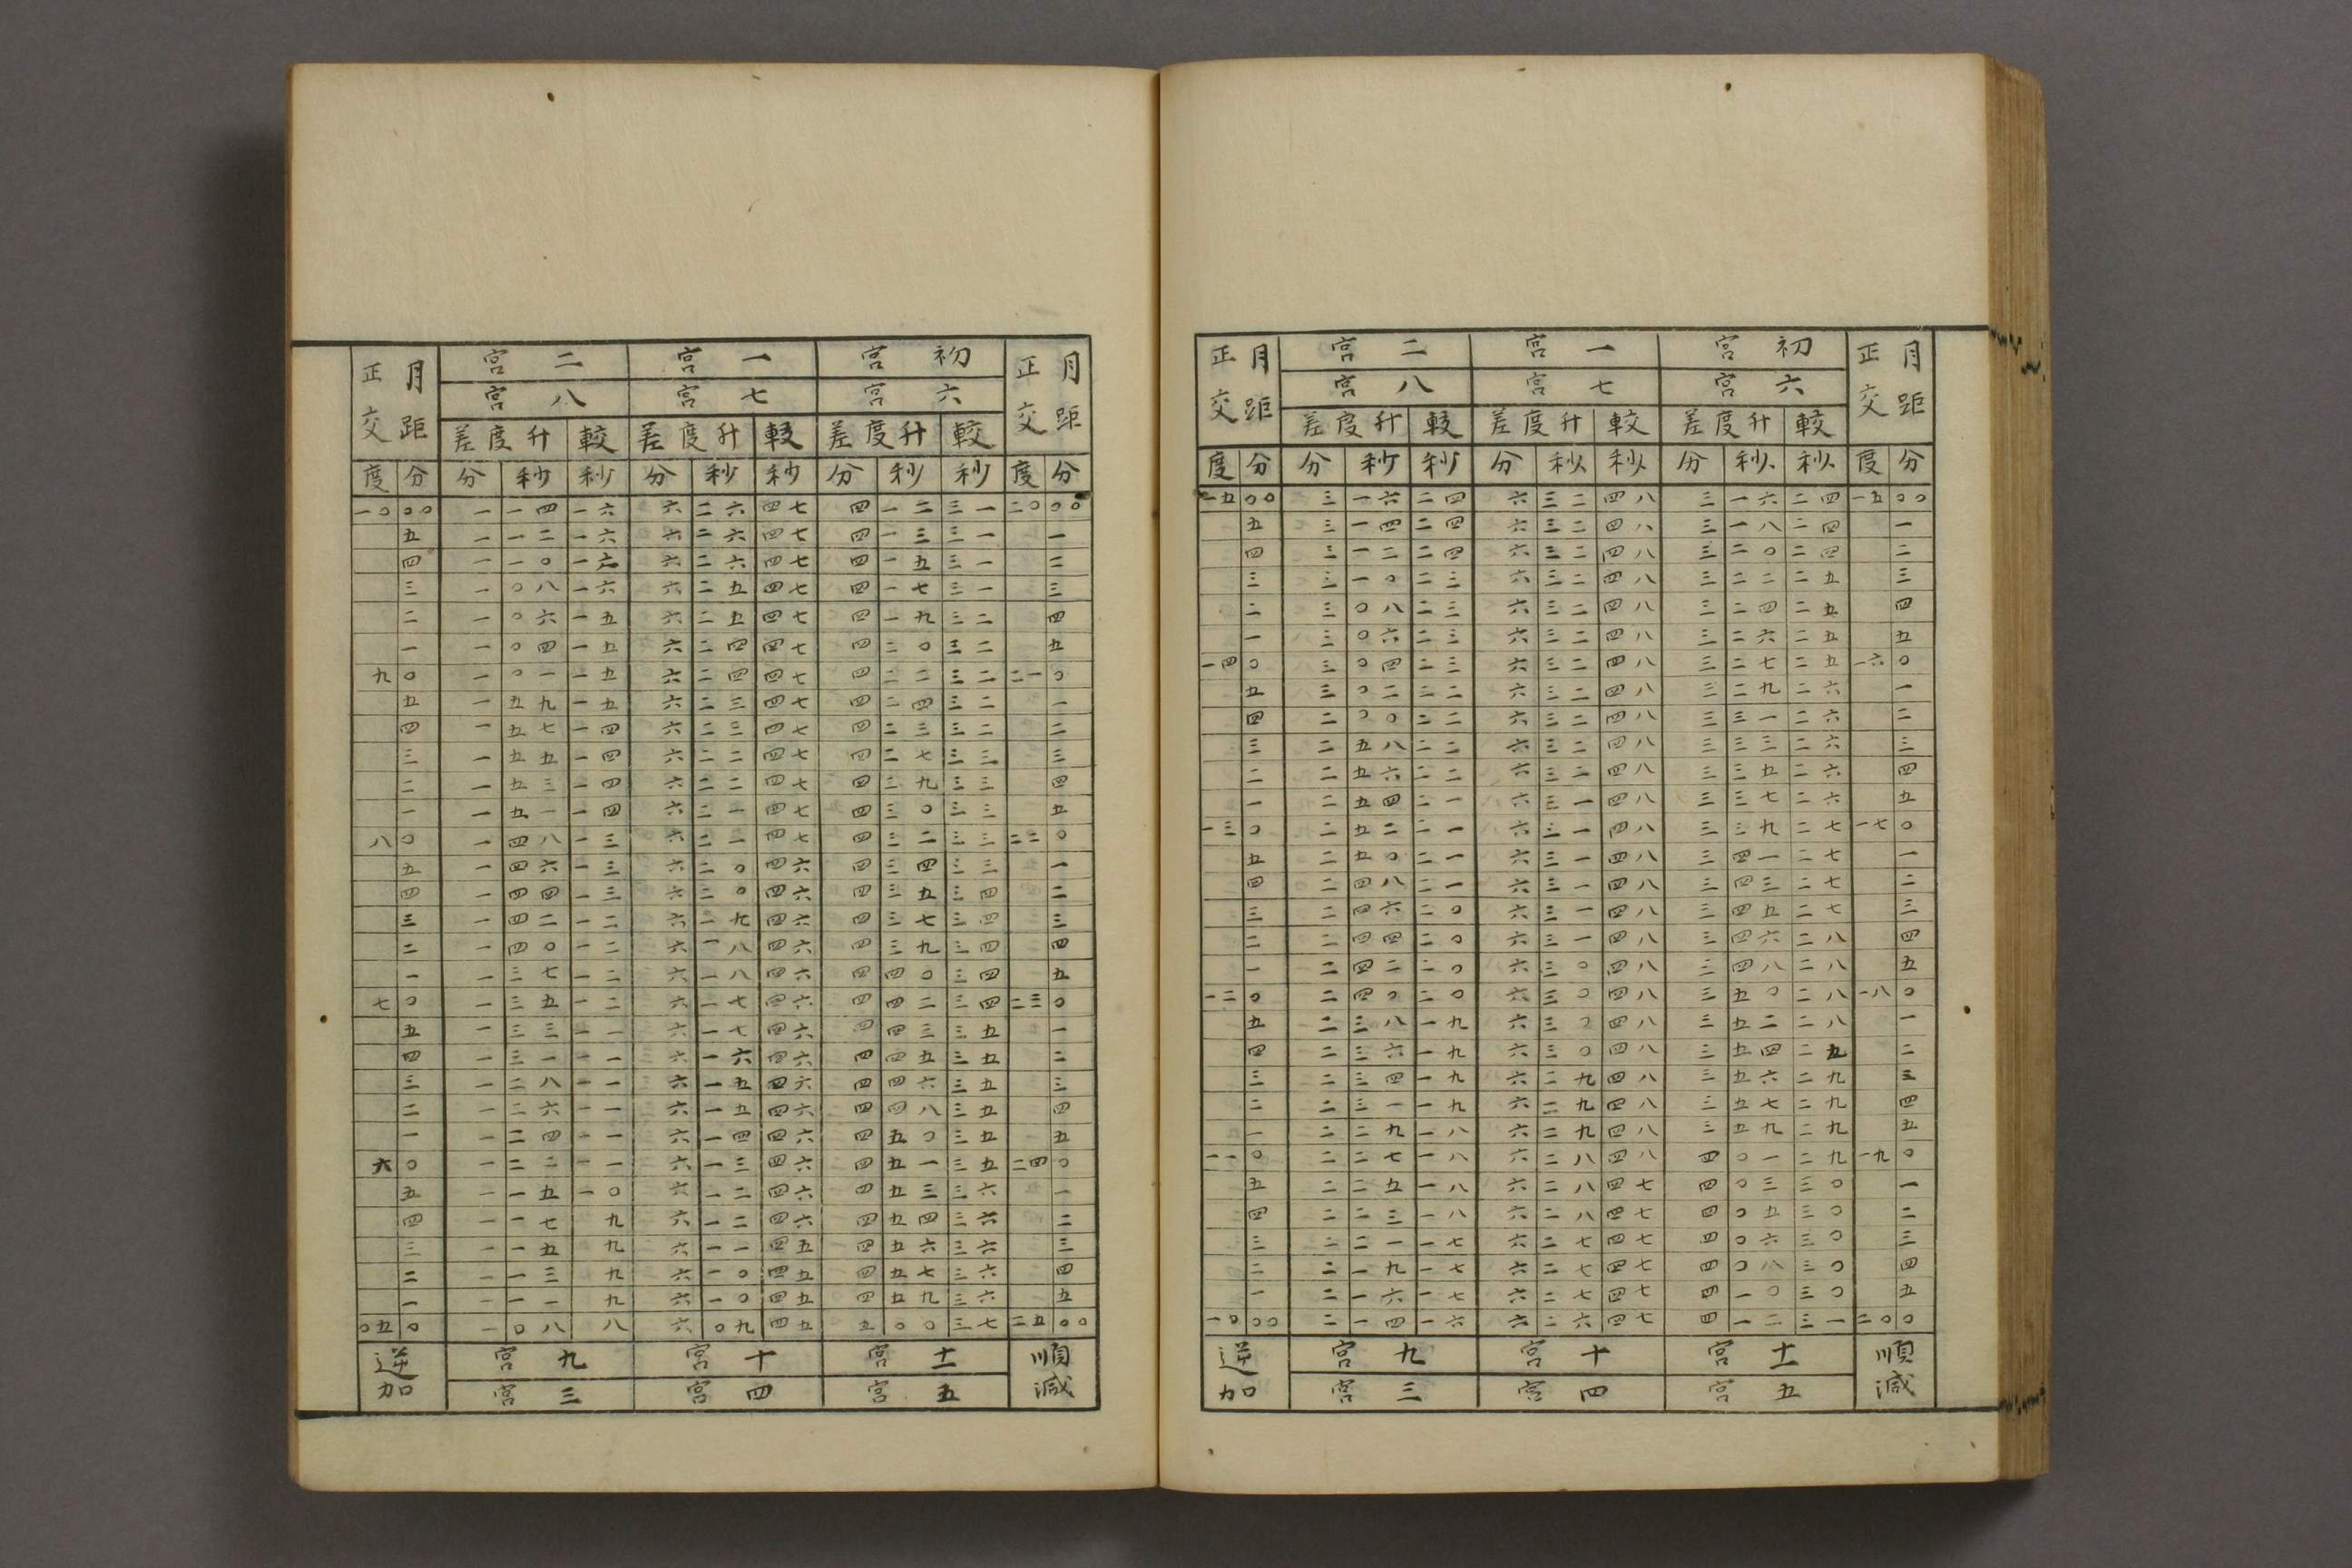 月距正交 初宮 一宮 二宮 月距正交
六宮 七宮 八宮
較 升度差 較 升度差 較 升度差
度 分 分 秒 秒 分 秒 秒 分 秒 秒 度 分
一五 〇〇 三 一六 二四 六 三二 四八 三 一六 二四 一五 〇〇
五 三 一四 二四 六 三二 四八 三 一八 二四 一
四 三 一二 二四 六 三二 四八 三 二〇 二四 二
三 三 一〇 二三 六 三二 四八 三 二二 二五 三
二 三 〇八 二三 六 三二 四八 三 二四 二五 四
一 三 〇六 二三 六 三二 四八 三 二六 二五 五
一四 〇 三 〇四 二三 六 三二 四八 三 二七 二五 一六 〇
五 三 〇二 二二 六 三二 四八 三 二九 二六 一
四 二 〇〇 二二 六 三二 四八 三 三一 二六 二
三 二 五八 二二 六 三二 四八 三 三三 二六 三
二 二 五六 二二 六 三二 四八 三 三五 二六 四
一 二 五四 二一 六 三一 四八 三 三七 二六 五
一三 〇 二 五二 二一 六 三一 四八 三 三九 二七 一七 〇
五 二 五〇 二一 六 三一 四八 三 四一 二七 一
四 二 四八 二一 六 三一 四八 三 四三 二七 二
三 二 四六 二〇 六 三一 四八 三 四五 二七 三
二 二 四四 二〇 六 三一 四八 三 四六 二八 四
一 二 四二 二〇 六 三〇 四八 三 四八 二八 五
一二 〇 二 四〇 二〇 六 三〇 四八 三 五〇 二八 一八 〇
五 二 三八 一九 六 三〇 四八 三 五二 二八 一
四 二 三六 一九 六 三〇 四八 三 五四 二九 二
三 二 三四 一九 六 二九 四八 三 五六 二九 三
二 二 三一 一九 六 二九 四八 三 五七 二九 四
一 二 二九 一八 六 二九 四八 三 五九 二九 五
一一 〇 二 二七 一八 六 二八 四八 四 〇一 二九 一九 〇
五 二 二五 一八 六 二八 四七 四 〇三 三〇 一
四 二 二三 一八 六 二八 四七 四 〇五 三〇 二
三 二 二一 一七 六 二七 四七 四 〇六 三〇 三
二 二 一九 一七 六 二七 四七 四 〇八 三〇 四
一 二 一六 一七 六 二七 四七 四 一〇 三〇 五
一〇 〇〇 二 一四 一六 六 二六 四七 四 一二 三一 二〇 〇
順減 十一宮 十宮 九宮 逆加
五宮 四宮 三宮
月距正交 初宮 一宮 二宮 月距正交
六宮 七宮 八宮
較 升度差 較 升度差 較 升度差
度 分 分 秒 秒 分 秒 秒 分 秒 秒 度 分
一〇 〇〇 一 一四 一六 六 二六 四七 四 一二 三一 二〇 〇〇
五 一 一二 一六 六 二六 四七 四 一三 三一 一
四 一 一〇 一六 六 二六 四七 四 一五 三一 二
三 一 〇八 一六 六 二五 四七 四 一七 三一 三
二 一 〇六 一五 六 二五 四七 四 一九 三二 四
一 一 〇四 一五 六 二四 四七 四 二〇 三二 五
九 〇 一 〇一 一五 六 二四 四七 四 二二 三二 二一 〇
五 一 五九 一五 六 二三 四七 四 二四 三二 一
四 一 五七 一四 六 二三 四七 四 二三 三二 二
三 一 五五 一四 六 二二 四七 四 二七 三三 三
二 一 五三 一四 六 二二 四七 四 二九 三三 四
一 一 五一 一四 六 二一 四七 四 三〇 三三 五
八 〇 一 四八 一三 六 二一 四七 四 三二 三三 二二 〇
五 一 四六 一三 六 二〇 四六 四 三四 三三 一
四 一 四四 一三 六 二〇 四六 四 三五 三四 二
三 一 四二 一二 六 一九 四六 四 三七 三四 三
二 一 四〇 一二 六 一八 四六 四 三九 三四 四
一 一 三七 一二 六 一八 四六 四 四〇 三四 五
七 〇 一 三五 一二 六 一七 四六 四 四二 三四 二三 〇
五 一 三三 一一 六 一七 四六 四 四三 三五 一
四 一 三一 一一 六 一六 四六 四 四五 三五 二
三 一 二八 一一 六 一五 四六 四 四六 三五 三
二 一 二六 一一 六 一五 四六 四 四八 三五 四
一 一 二四 一一 六 一四 四六 四 五〇 三五 五
六 〇 一 二二 一一 六 一三 四六 四 五一 三五 二四 〇
五 一 一五 一〇 六 一二 四六 四 五三 三六 一
四 一 一七 九 六 一二 四六 四 五四 三六 二
三 一 一五 九 六 一一 四五 四 五六 三六 三
二 一 一三 九 六 一〇 四五 四 五七 三六 四
一 一 一一 九 六 一〇 四五 四 五九 三六 五
〇五 〇 一 〇八 八 六 〇九 四五 五 〇〇 三七 二五 〇〇
順減 十一宮 十宮 九宮 逆加
五宮 四宮 三宮